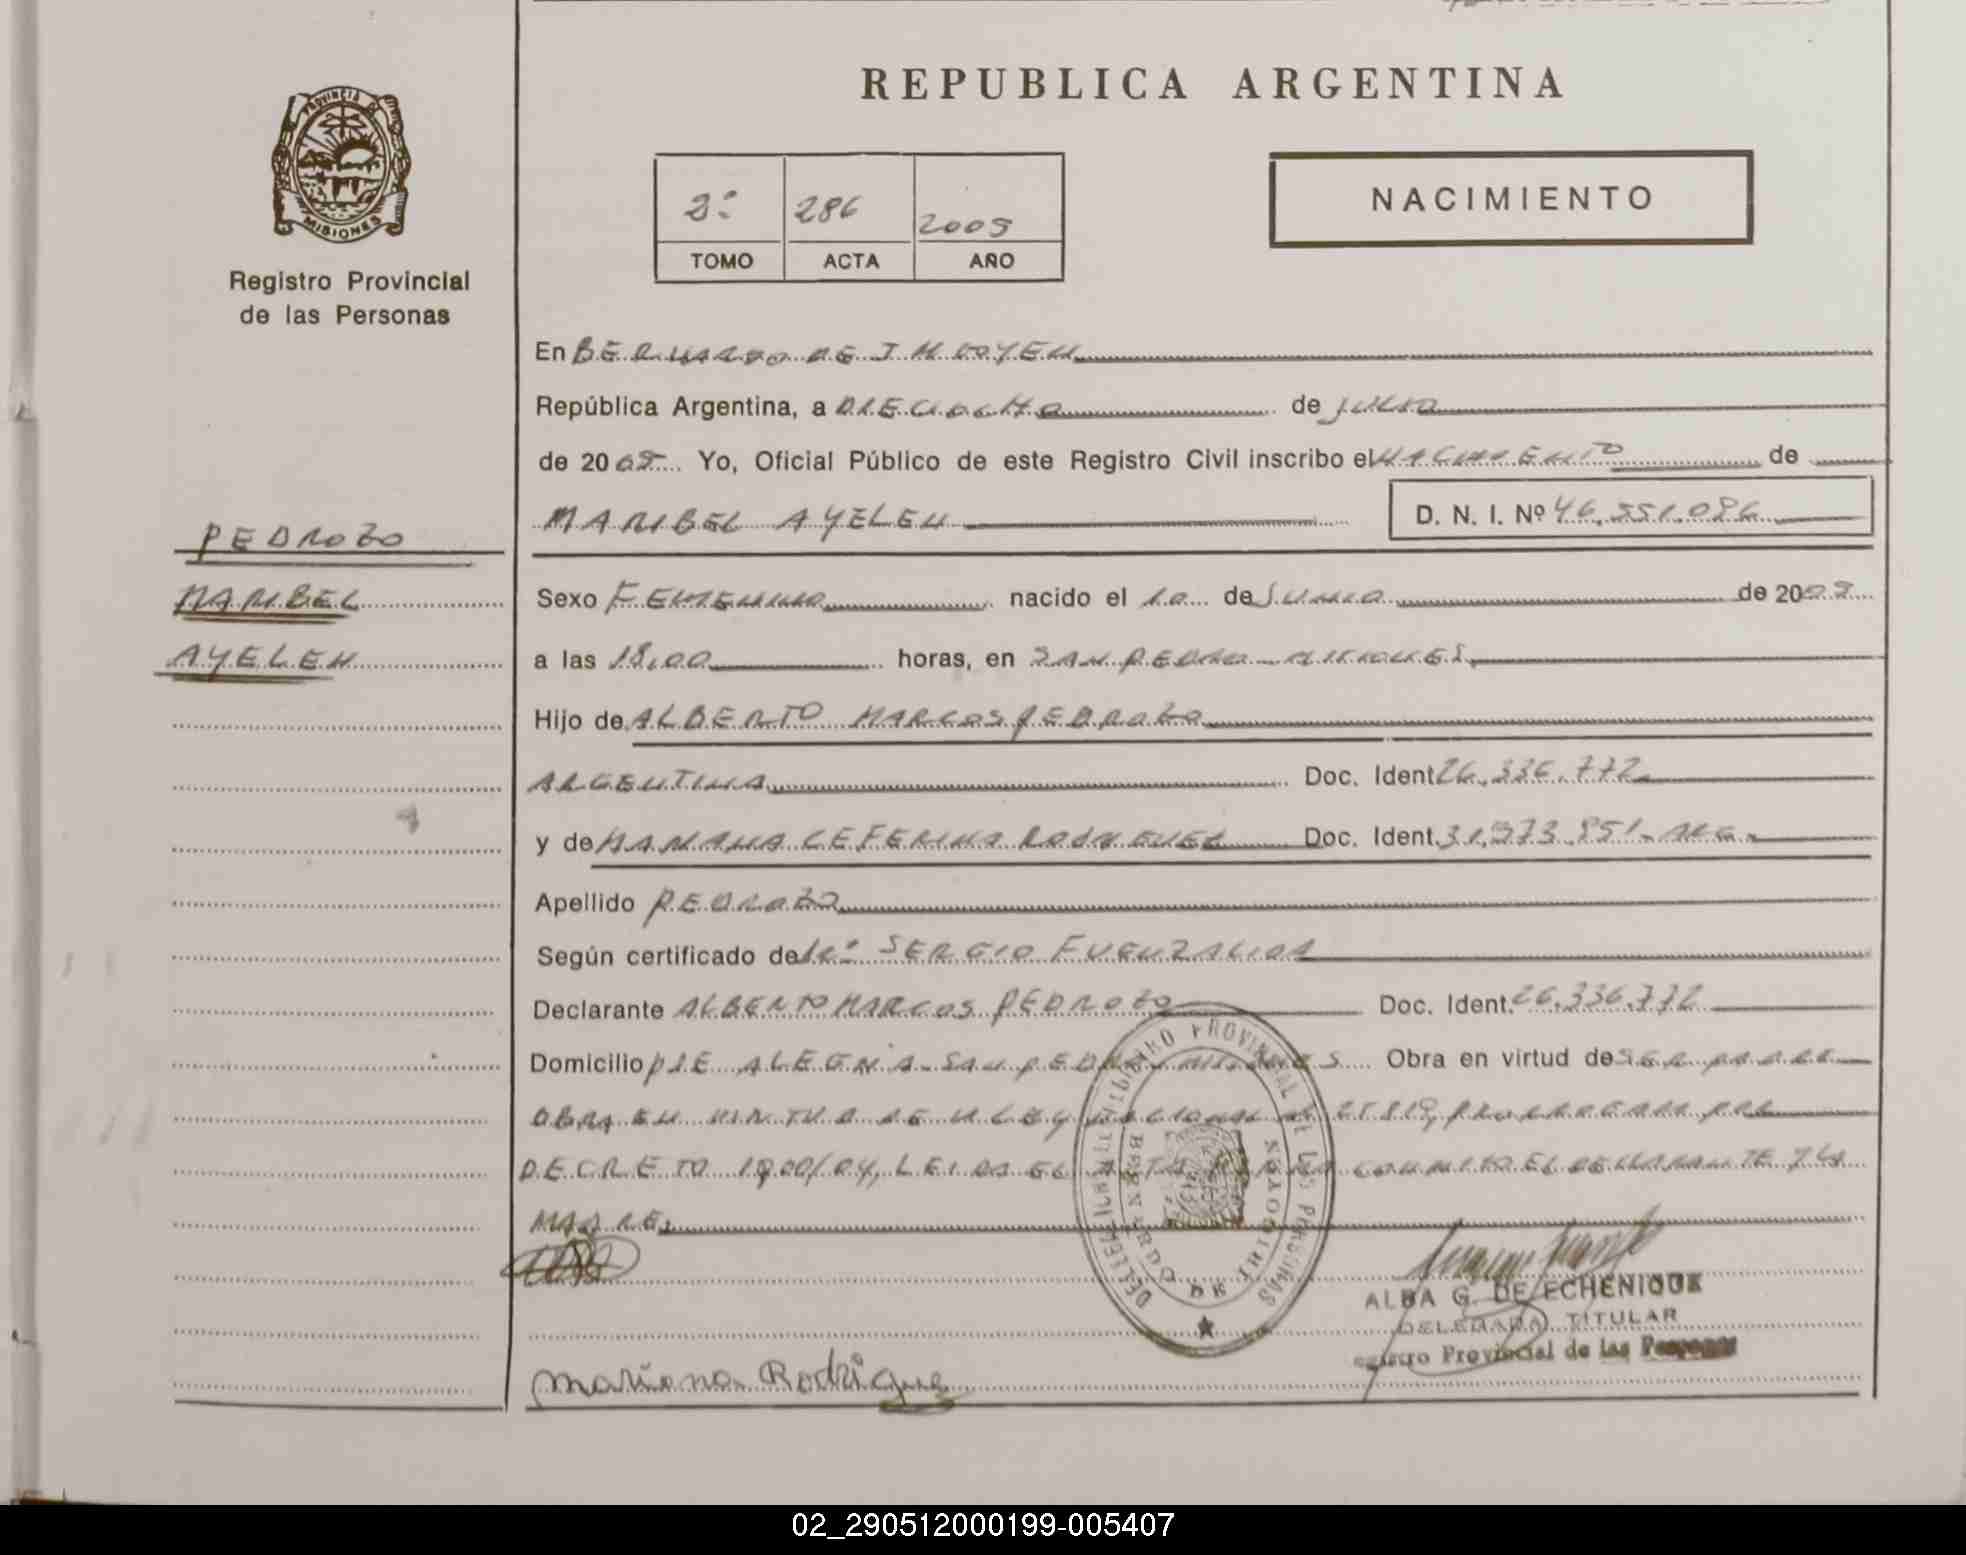 REPUBLICA ARGENTINA
PROVINCIA DE
MISIONES
Registro Provincial
de las Personas
2º 286 2005
TOMO ACTA AÑO
NACIMIENTO
En BERNARDO DE IRIGOYEN
República Argentina, a DIECIOCHO de JULIO
de 2005 Yo, Oficial Público de este Registro Civil inscribo el NACIMIENTO de
MARIBEL AYELEN D. N. I. Nº 46.551.086
PEDROZO
MARIBEL
AYELEN
Sexo FEMENINO nacido el 10 de JUNIO de 2005
a las 18,00 horas, en SAN PEDRO - MISIONES.
Hijo de ALBERTO MARCOS PEDROZO
ARGENTINA Doc. Ident. 26.336.772
y de MARIANA CEFERINA RODRIGUEZ Doc. Ident. 31.573.851 - ARG.
Apellido PEDROZO
Según certificado de SERGIO FUENZALIDA
Declarante ALBERTO MARCOS PEDROZO Doc. Ident. 26.336.772
Domicilio PJE ALEGRIA - SAN PEDRO - MISIONES Obra en virtud de SER PADRE
OBRA EN VIRTUD DE LA LEY NACIONAL Nº 25819, PRORROGADA POR
DECRETO 1900/04, LEIDA EL ACTA FIRMA CONMIGO EL DECLARANTE Y LA
MADRE.
DELEGACION REGISTRO PROVINCIAL DE LAS PERSONAS
BERNARDO DE IRIGOYEN
ALBA G. DE ECHENIQUE
DELEGADA TITULAR
Registro Provincial de las Personas
Mariana Rodrigue
02_290512000199-005407